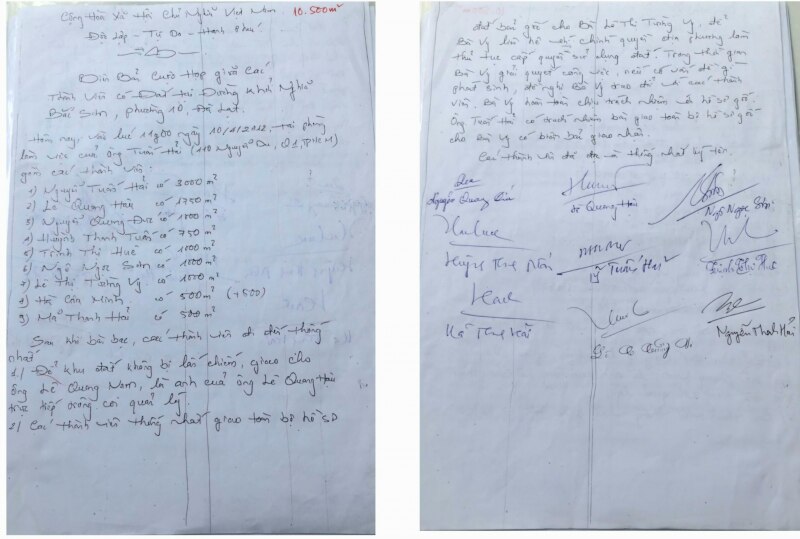 Cộng Hòa Xã Hội Chủ Nghĩa Việt Nam
10.500m²
Độc Lập - Tự Do - Hạnh Phúc
Biên Bản Cuộc Họp giữa Các
Thành Viên có Đất tại Đường Khởi Nghĩa
Bắc Sơn, phường 10, Đà Lạt.
Hôm nay, vào lúc 11g00 ngày 10/1/2012, tại phòng
làm việc của ông Tuấn Hải (110 Nguyễn Du, Q1, TPHCM)
gồm các thành viên:
1) Nguyễn Tuấn Hải có 3000 m²
2) Lê Quang Hải có 1750 m²
3) Nguyễn Quang Đức có 1000 m²
4) Huỳnh Thanh Tuấn có 750 m²
5) Trịnh Thị Huê có 1000 m²
6) Ngô Ngọc Sơn có 1000 m²
7) Lê Thị Tường Vy có 1000 m²
8) Hà Căn Minh có 500 m² (+500)
9) Mã Thanh Hải có 500 m²
Sau khi bàn bạc, các thành viên đi đến thống
nhất
1/ Để khu đất không bị lấn chiếm, giao cho
ông Lê Quang Nam, là anh của ông Lê Quang Hải
trực tiếp trông coi quản lý.
2/ Các thành viên thống nhất giao toàn bộ hồ sơ
đất bản gốc cho Bà Lê Thị Tường Vy, để
Bà Vy liên hệ với chính quyền địa phương làm
thủ tục cấp quyền sử dụng đất. Trong thời gian
Bà Vy giải quyết công việc, nếu có vấn đề gì
phát sinh, đề nghị Bà Vy trao đổi với các thành
viên. Bà Vy hoàn toàn chịu trách nhiệm về hồ sơ gốc.
Ông Tuấn Hải có trách nhiệm bàn giao toàn bộ hồ sơ gốc
cho Bà Vy có biên bản giao nhận.
Các thành viên đã đọc và thống nhất ký tên.
Nguyễn Quang
Lê Quang Hải
Ngô Ngọc Sơn
Huỳnh
Trịnh Thị Huê
Nguyễn Thanh Hải